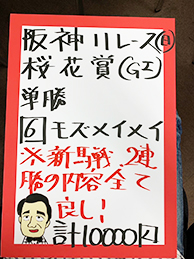 阪神11レース(日)
桜花賞(GI)
単勝
6 モズメイメイ
※新馬戦、2連
勝の内容全て
良し!
計10000円